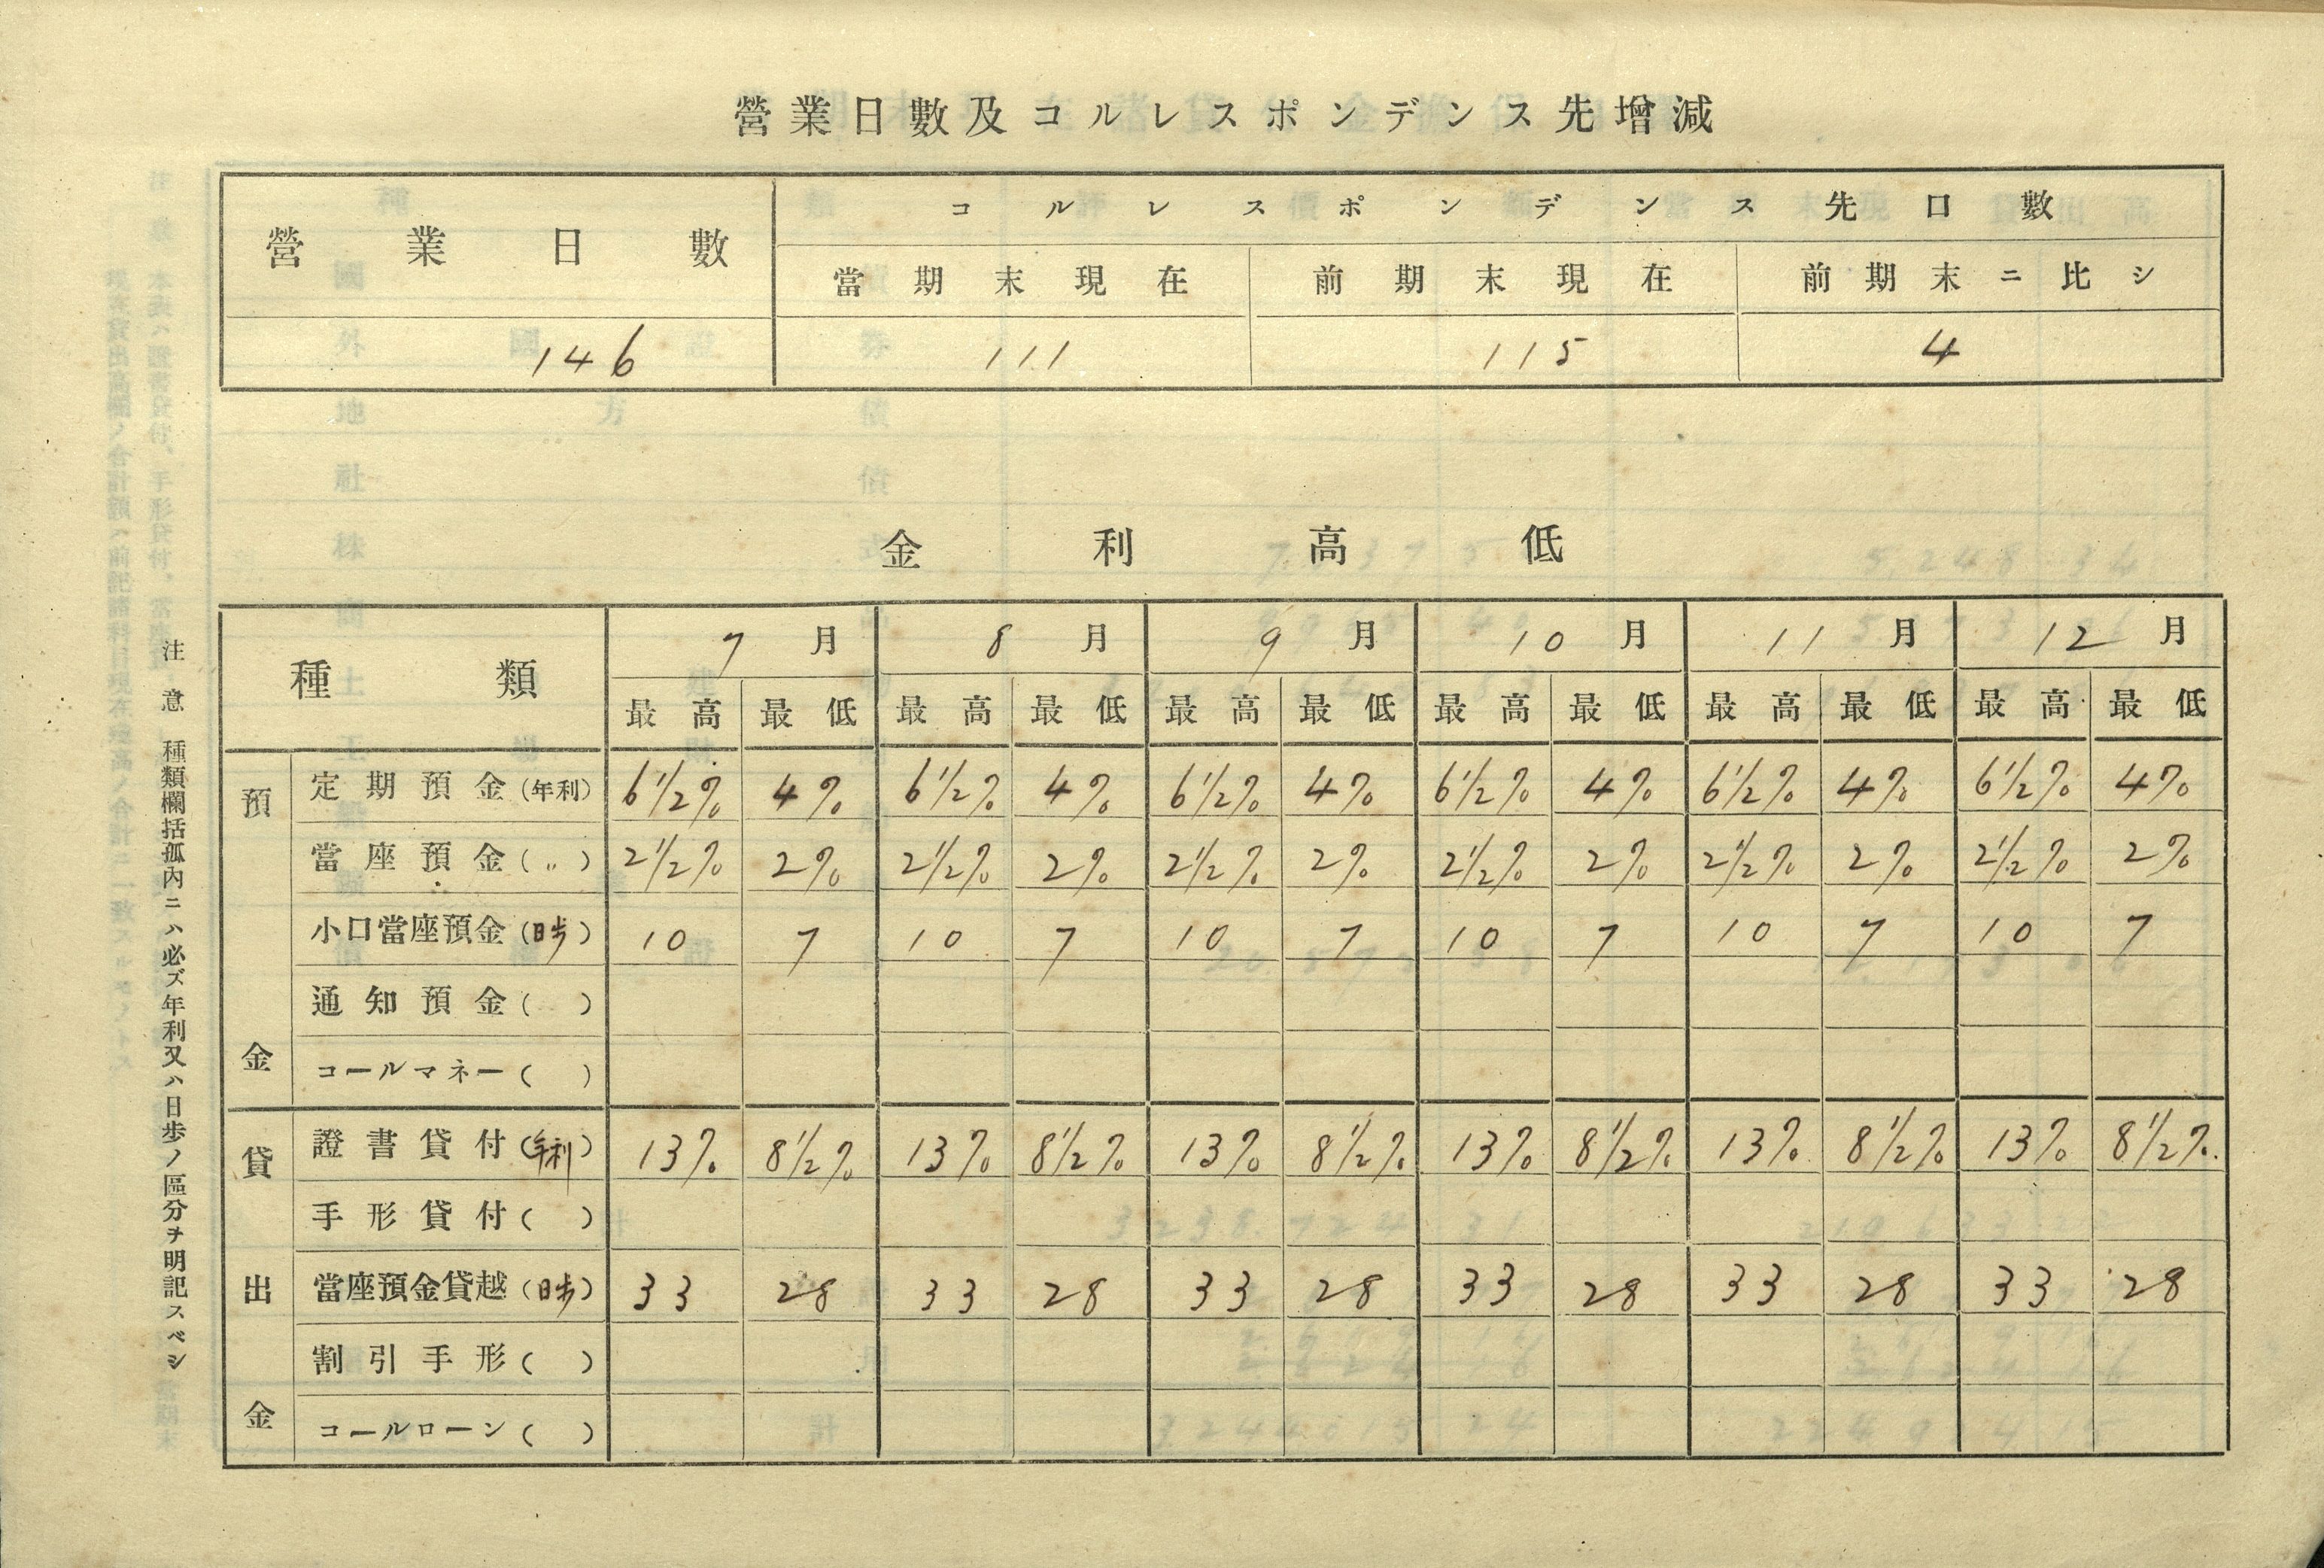 營業日數及コルレスポンデンス先增減
營業日數 コルレスポンデンス先口數
當期末現在 前期末現在 前期末ニ比シ
146 111 115 4
金利高低
種類 7月 8月 9月 10月 11月 12月
最高 最低 最高 最低 最高 最低 最高 最低 最高 最低 最高 最低
預金
定期預金(年利) 6 1/2% 4% 6 1/2% 4% 6 1/2% 4% 6 1/2% 4% 6 1/2% 4% 6 1/2% 4%
當座預金(〃) 2 1/2% 2% 2 1/2% 2% 2 1/2% 2% 2 1/2% 2% 2 1/2% 2% 2 1/2% 2%
小口當座預金(日歩) 10 7 10 7 10 7 10 7 10 7 10 7
通知預金( )
コールマネー( )
貸出金
證書貸付(年利) 13% 8 1/2% 13% 8 1/2% 13% 8 1/2% 13% 8 1/2% 13% 8 1/2% 13% 8 1/2%
手形貸付( )
當座預金貸越(日歩) 33 28 33 28 33 28 33 28 33 28 33 28
割引手形( )
コールローン( )
注意 種類欄括孤內ニハ必ズ年利又ハ日歩ノ區分ヲ明記スベシ